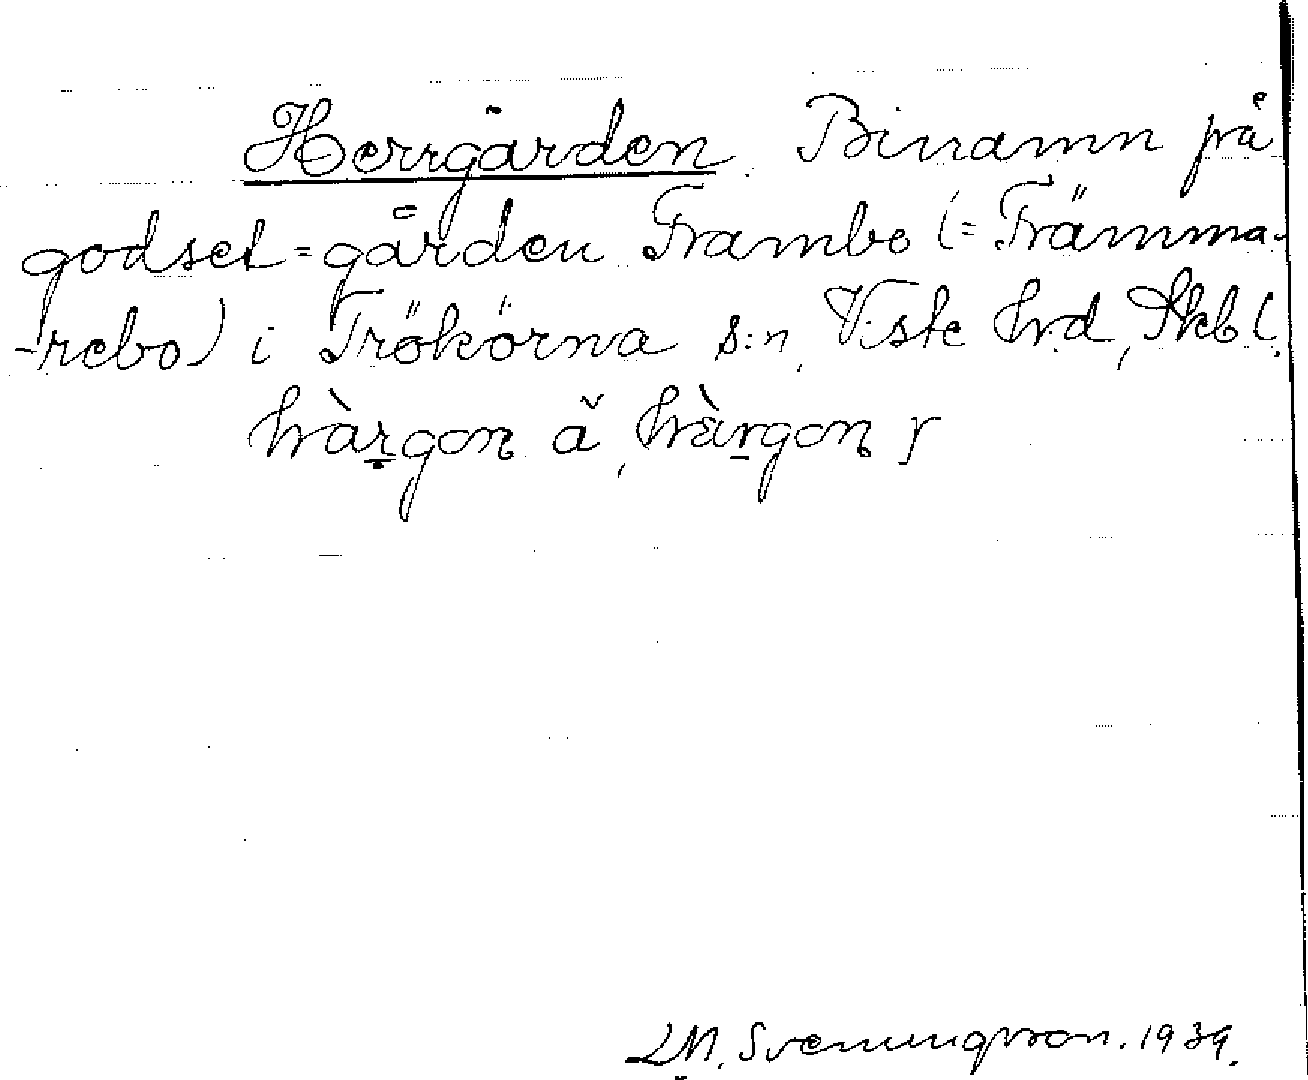 Herrgården. Binamn på
godset = gården Frambo (= Främma-
-rebo) i Trökörna s:n, Viste hrd, Skbl.
hàrgon ǎ, hàrgon r
L M. Svenungsson. 1939.